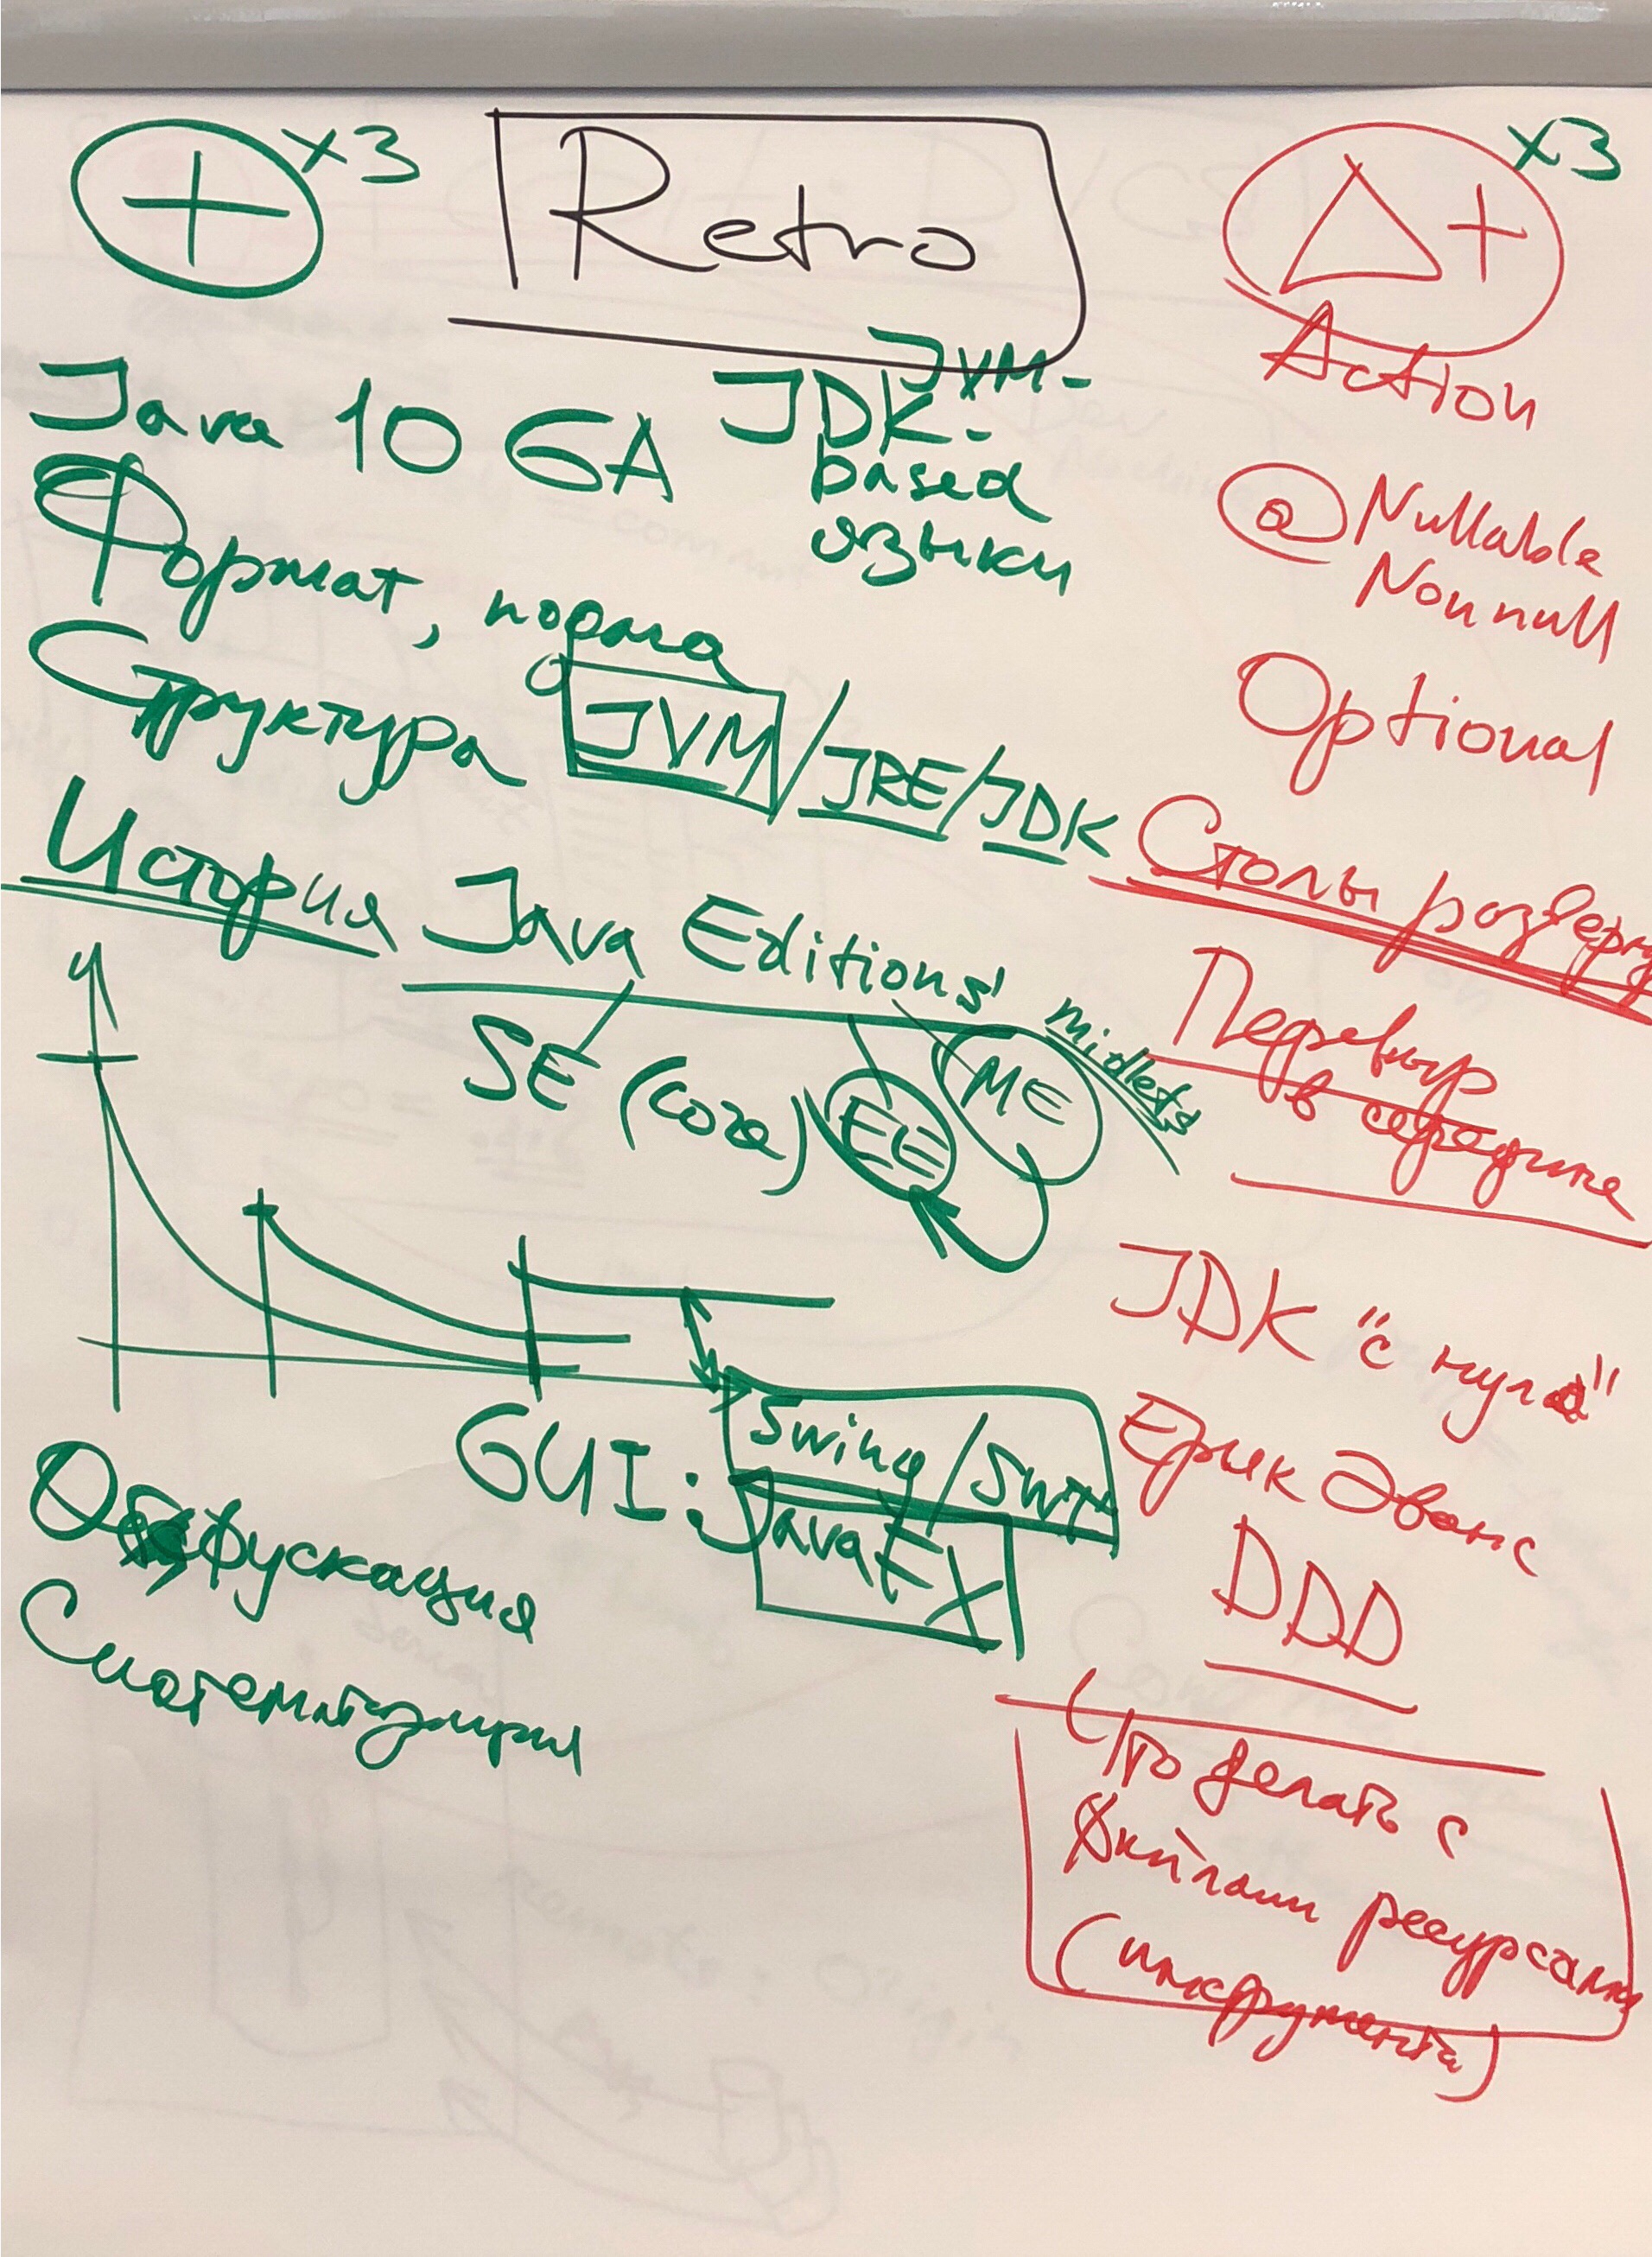 + x3
Retro
Δ+ x3
Action
Java 10 GA
JVM-
JDK-
based
языки
Формат, норма
Структура JVM/JRE/JDK
История Java Editions'
SE (core) EE ME midlets
GUI: Swing/SWT
JavaFX
Обфускация
Систематизация
@Nullable
Nonnull
Optional
Столы
Перерыв
в середине
JDK "с нуля"
Ерик Эванс
DDD
Что делать с
ресурсами